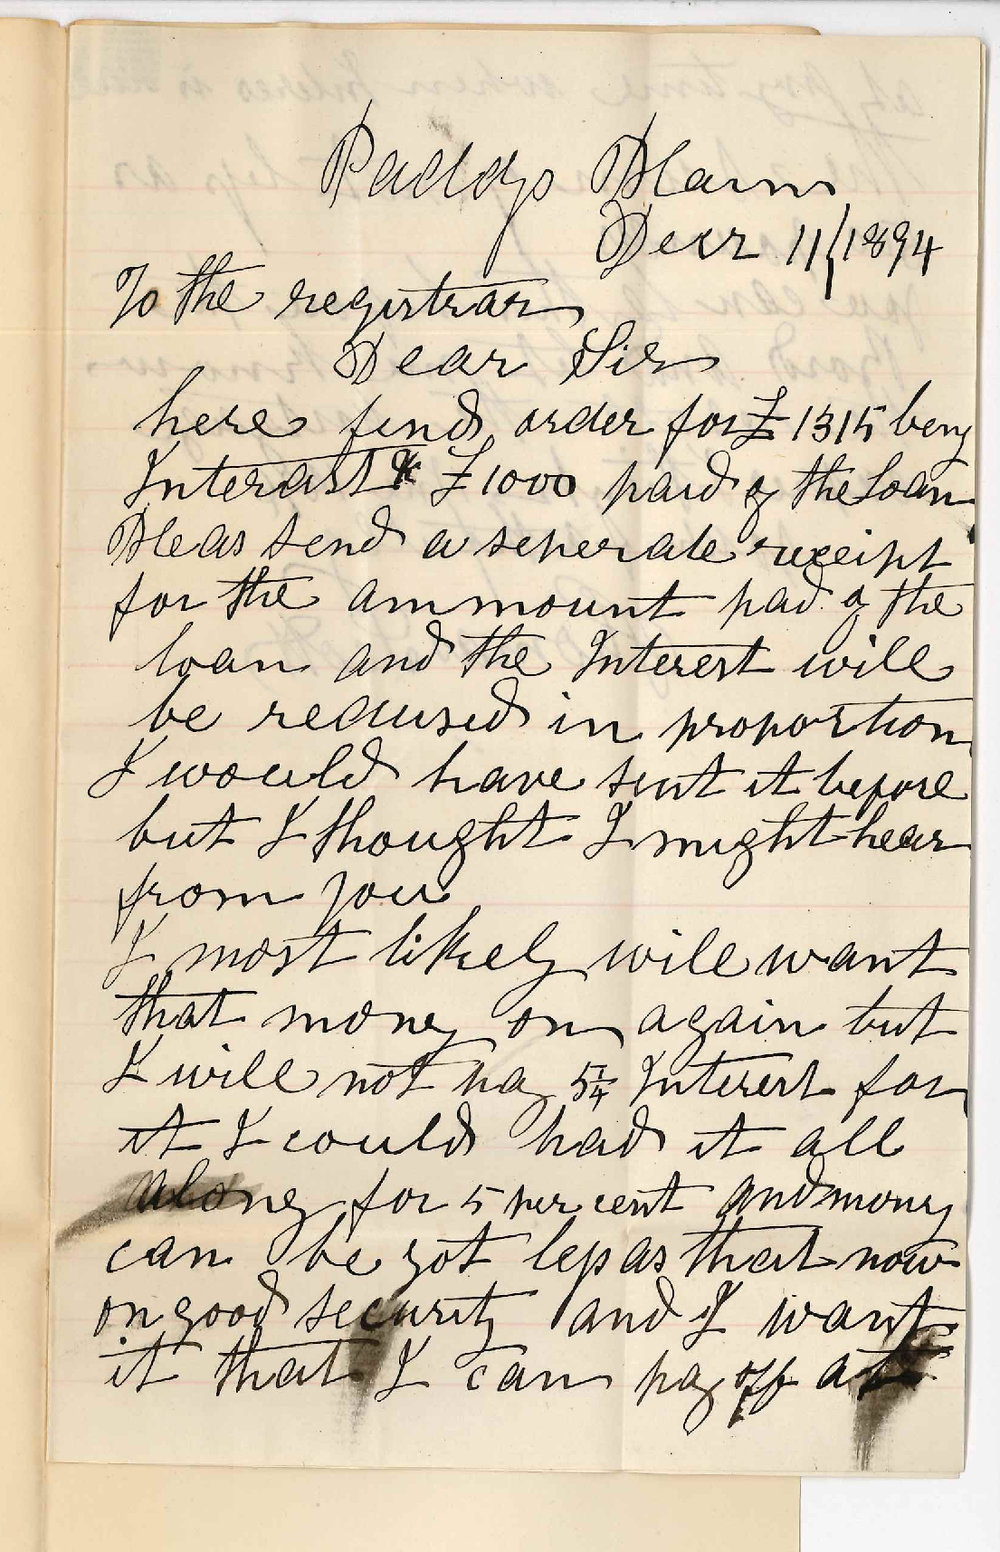 Paddys Plains
Decr 11/1894
To the registrar
Dear Sir
here find order for £1315 being
Interast & £1000 paid of the Loan
Pleas send a seperate receipt
for the ammount paid of the
loan and the Interest will
be redused in proportion
I would have sent it before
but I thought I might hear
from you
I most likely will want
that money on again but
I will not pay 5 1/4 Interest for
it I could had it all
along for 5 per cent and money
can be got less as that now
on good security and I want
it that I can pay off at